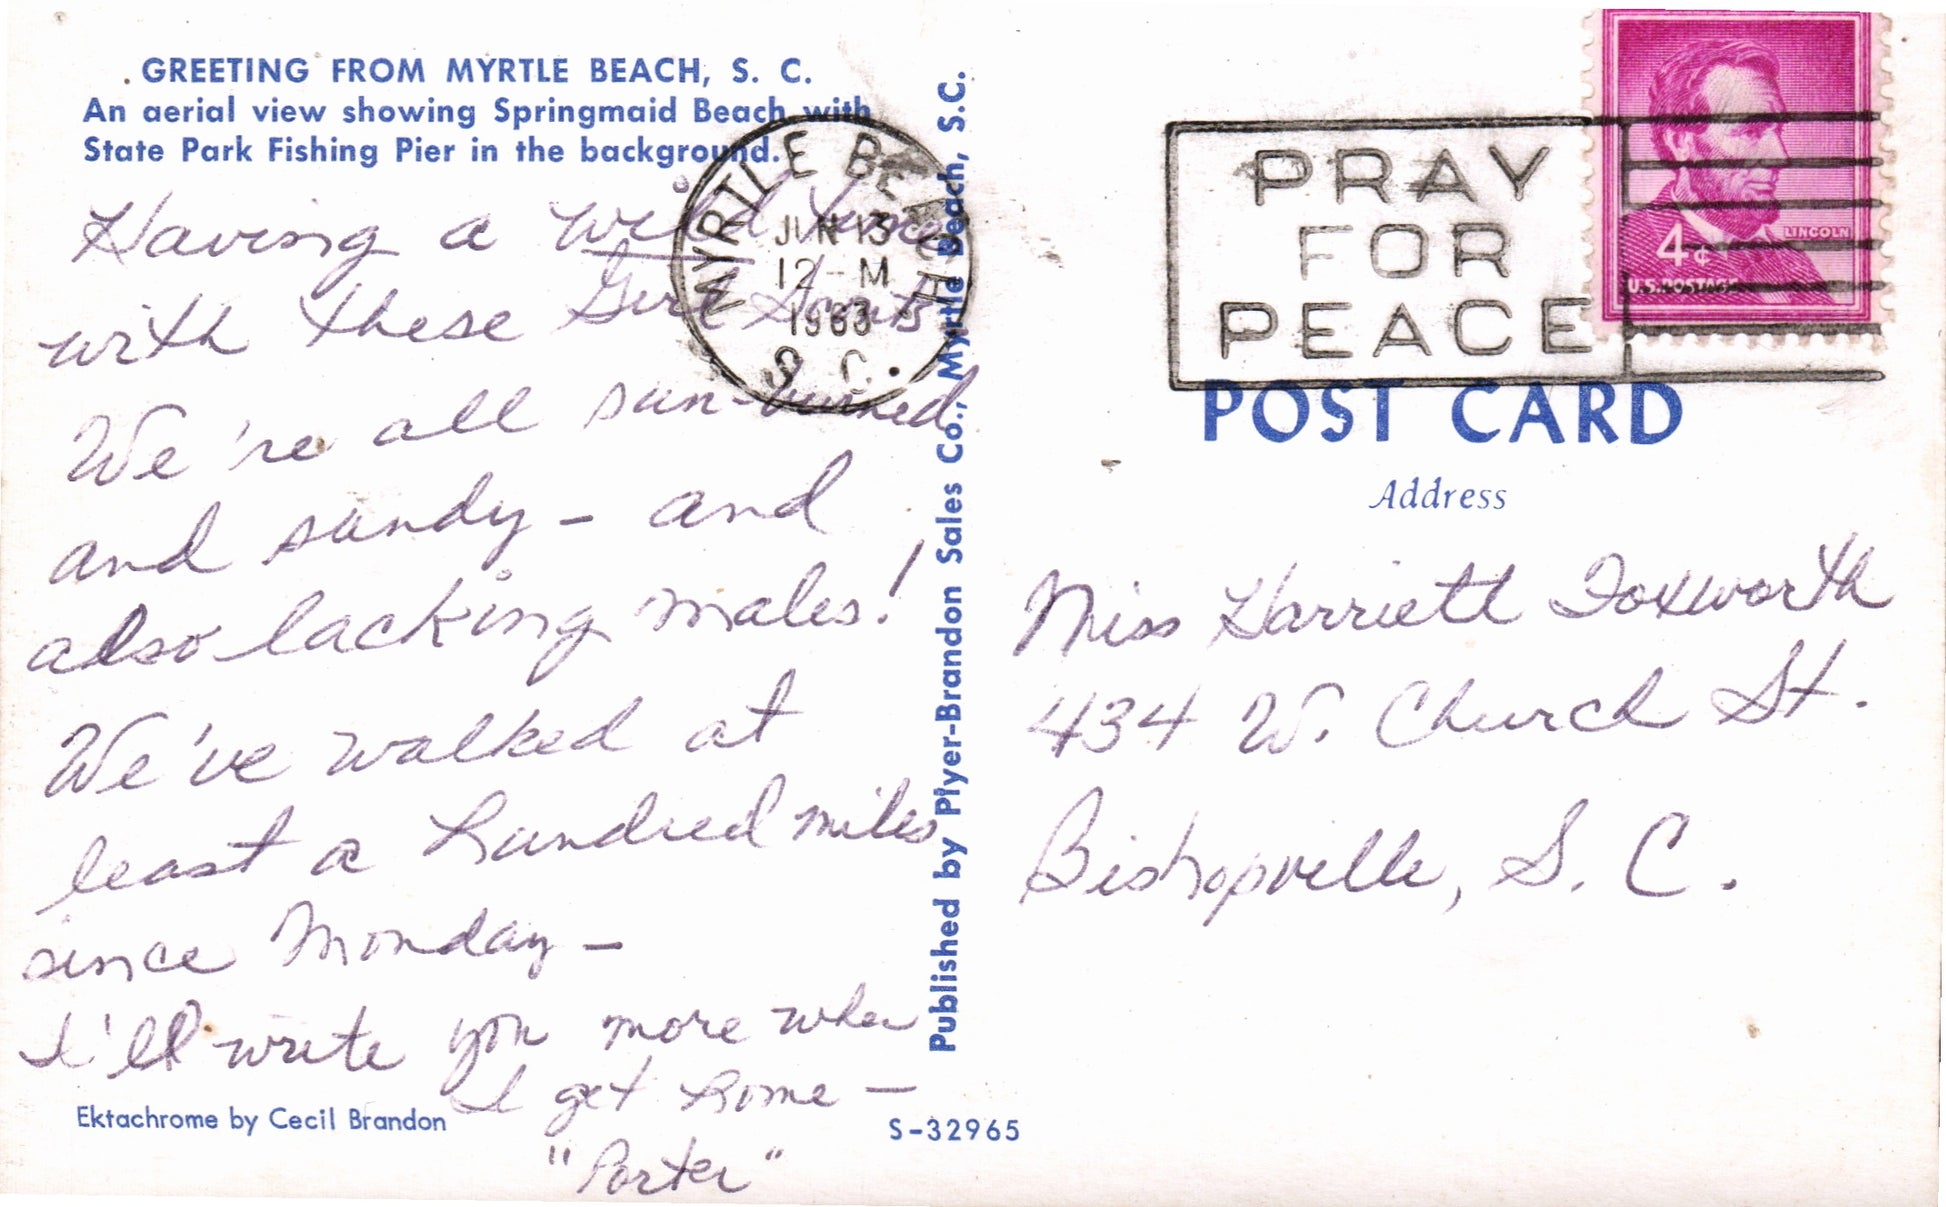 GREETING FROM MYRTLE BEACH, S. C.
An aerial view showing Springmaid Beach with
State Park Fishing Pier in the background.
Having a wild time
with these Girl Scouts
We're all sun-burned
and sandy - and
also lacking males!
We've walked at
least a hundred miles
since Monday -
I'll write you more when
I get home -
"Porter"
Ektachrome by Cecil Brandon
S-32965
Published by Plyer-Brandon Sales Co., Myrtle Beach, S.C.
MYRTLE BEACH
JUN 13
12 - M
1963
S. C.
PRAY
FOR
PEACE
4¢
LINCOLN
U.S. POSTAGE
POST CARD
Address
Miss Harriett Foxworth
434 W. Church St.
Bishopville, S. C.